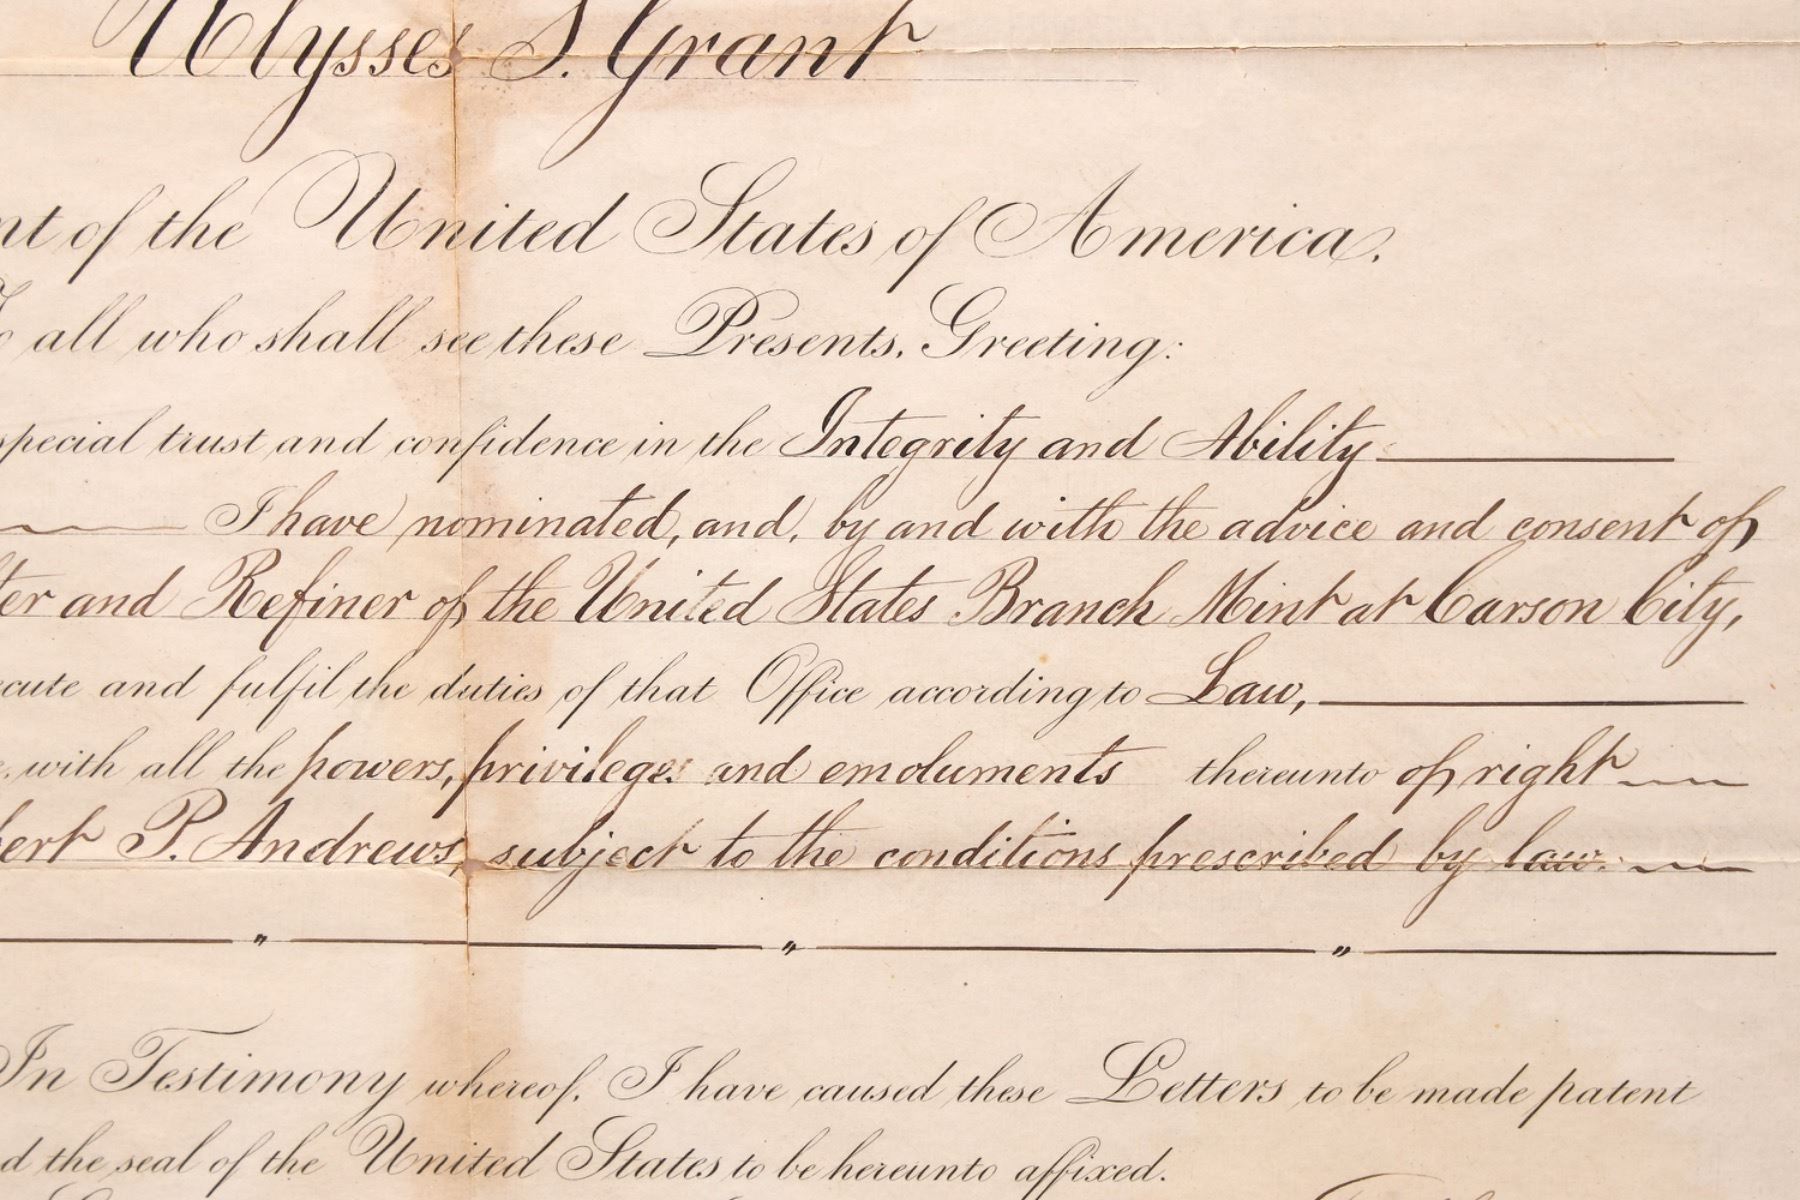 Ulysses S. Grant
nt of the United States of America.
To all who shall see these Presents, Greeting:
special trust and confidence in the Integrity and Ability
I have nominated, and, by and with the advice and consent of
ter and Refiner of the United States Branch Mint at Carson City,
cute and fulfil the duties of that Office according to Law,
with all the powers, privileges and emoluments thereunto of right
bert P. Andrews, subject to the conditions prescribed by law.
" " "
In Testimony whereof, I have caused these Letters to be made patent
d the seal of the United States to be hereunto affixed.